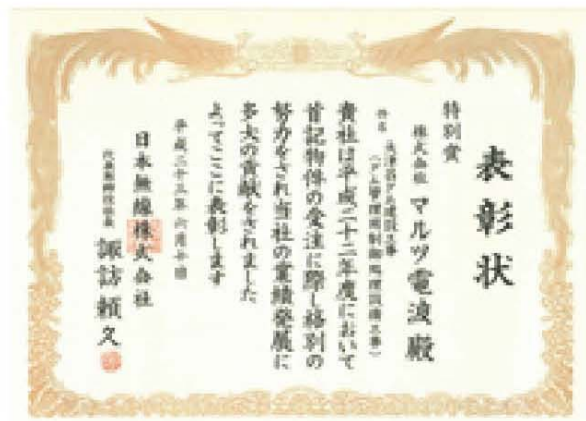 表彰状
特別賞
株式会社 マルツ電波 殿
件名 津沼ダム建設工事
(ダム管理用制御処理設備工事)
貴社は平成二十二年度において
首記物件の受注に際し格別の
努力をされ当社の業績発展に
多大の貢献をされました
よってここに表彰します
平成二十三年 六月 十日
日本無線株式会社
代表取締役社長 諏訪頼久